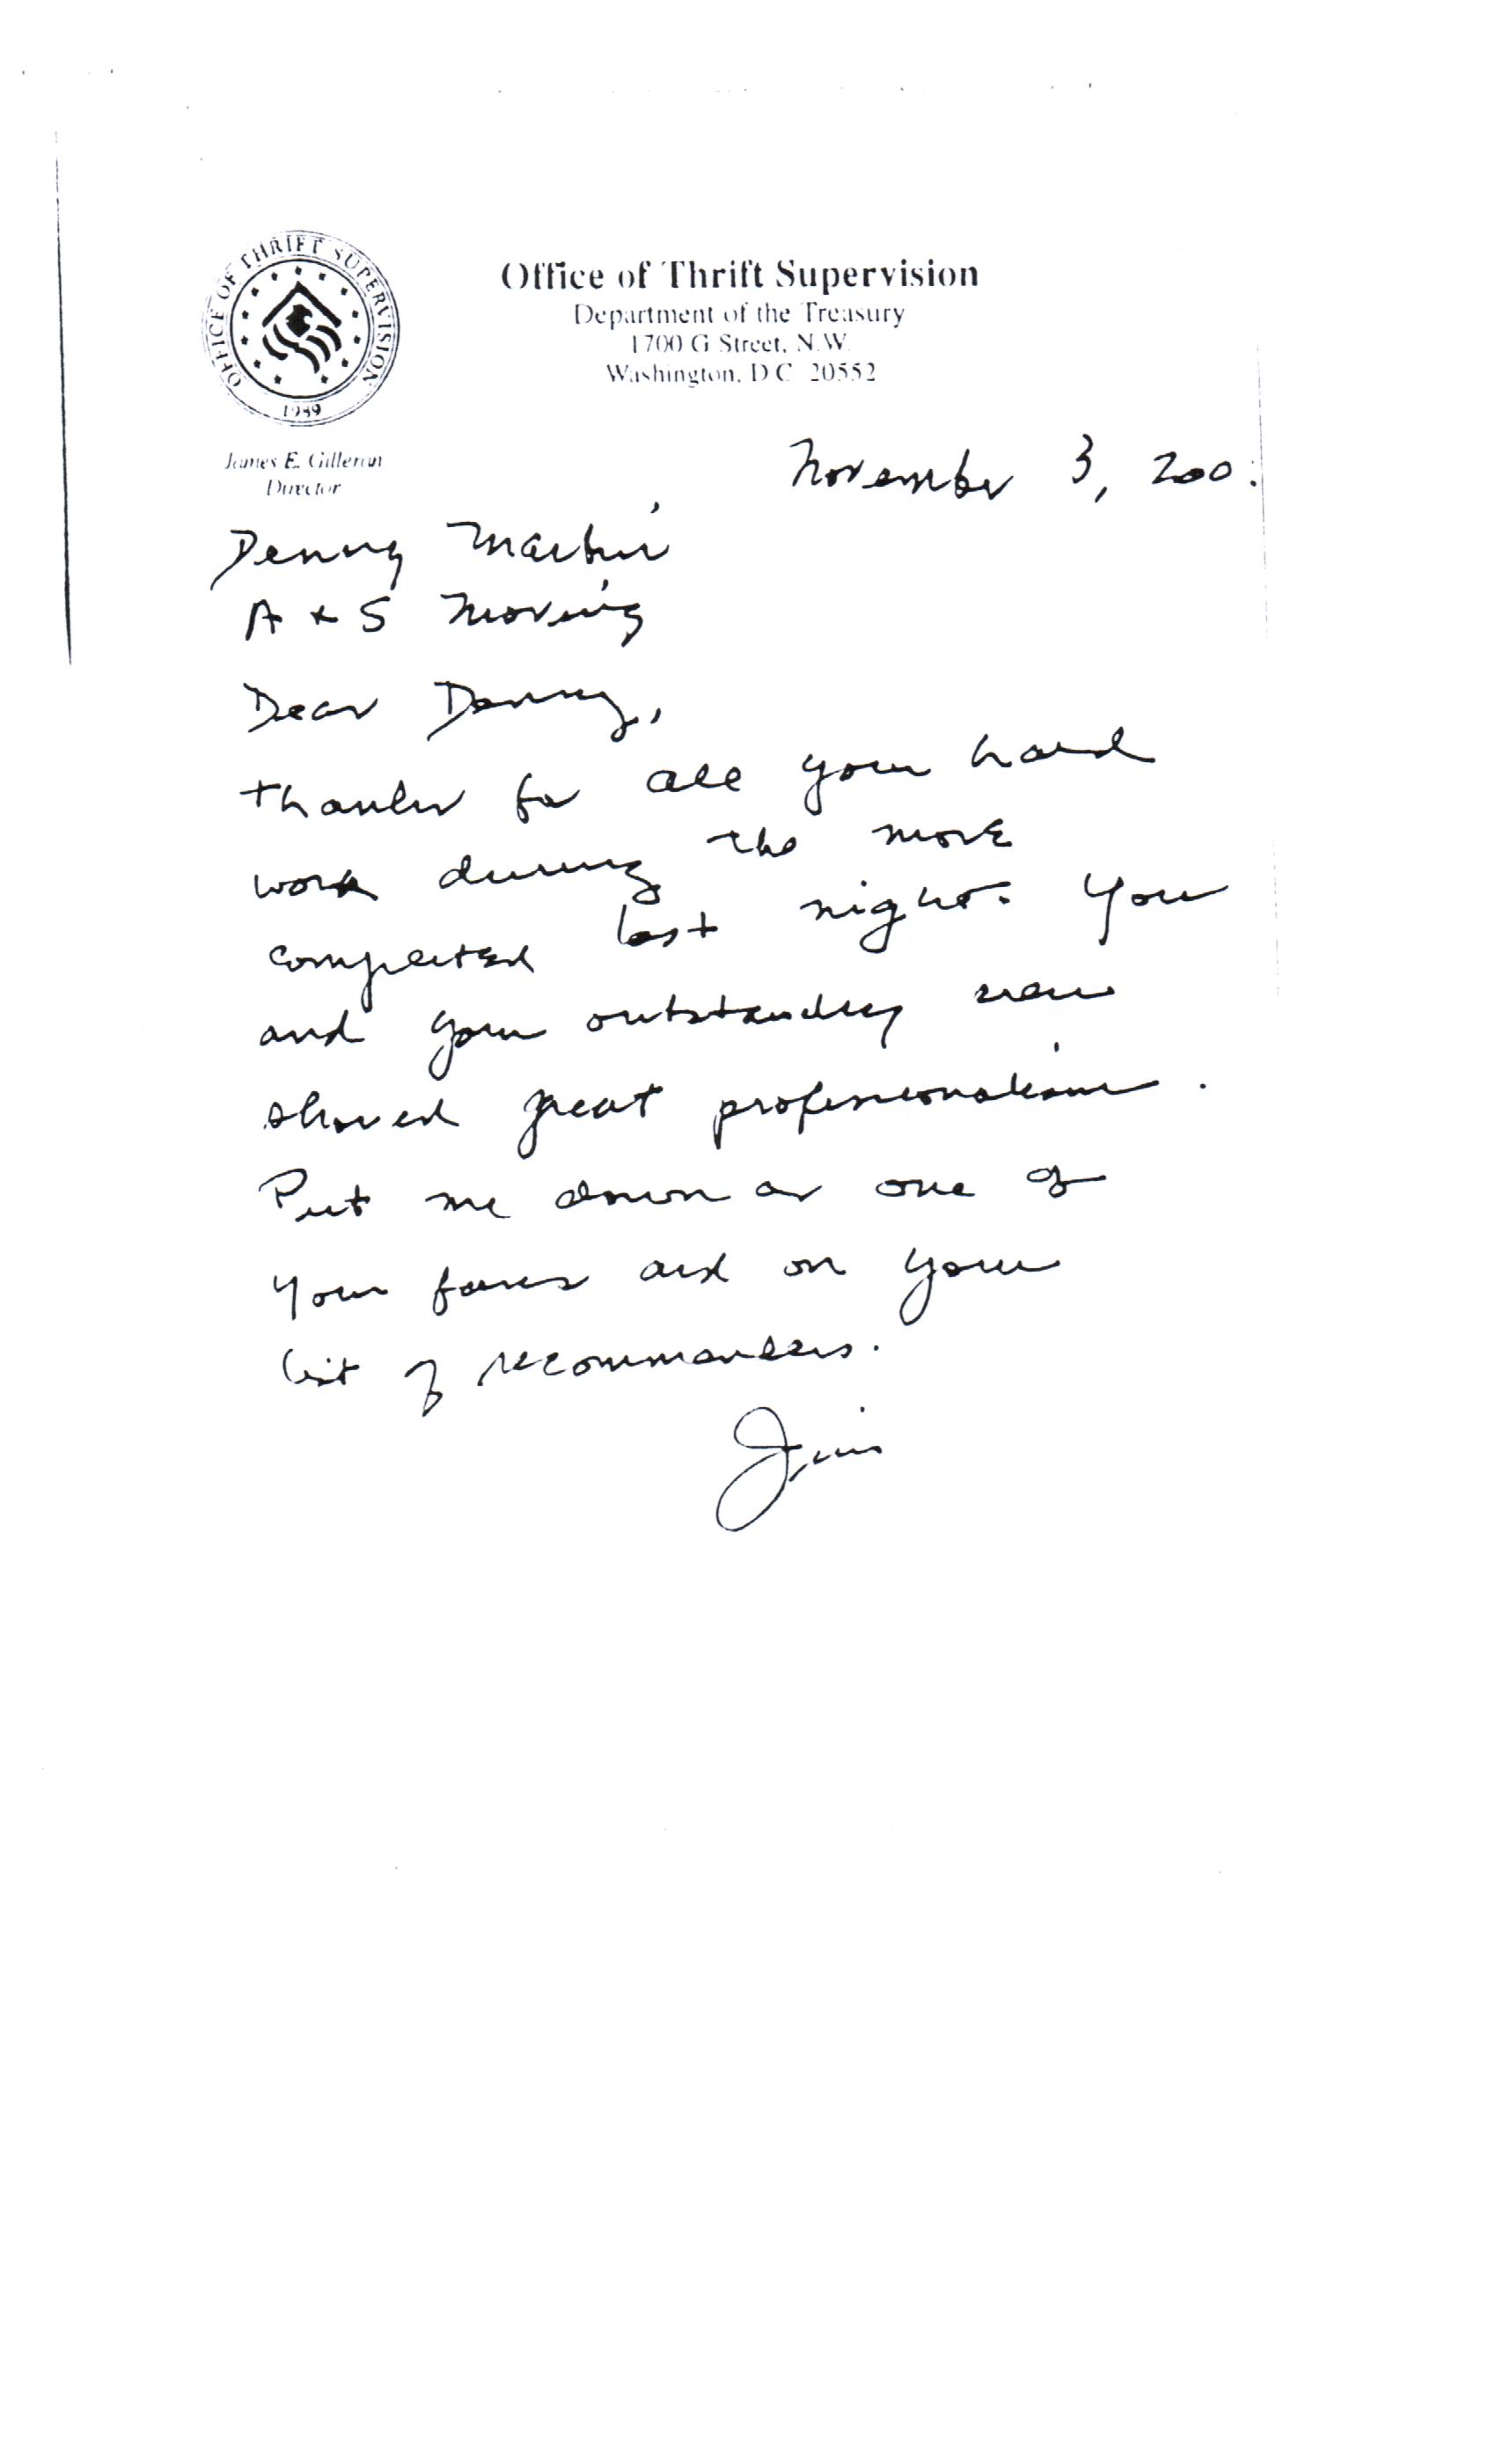 OFFICE OF THRIFT SUPERVISION
1989
Office of Thrift Supervision
Department of the Treasury
1700 G Street, N.W.
Washington, D.C. 20552
James E. Gilleran
Director
November 3, 200
Denny Martin
A + S Moving
Dear Denny,
thanks for all your hard
work during the move
completed last night. You
and your outstanding crew
showed great professionalism.
Put me down as one of
your fans and on your
list of recommenders.
Jim